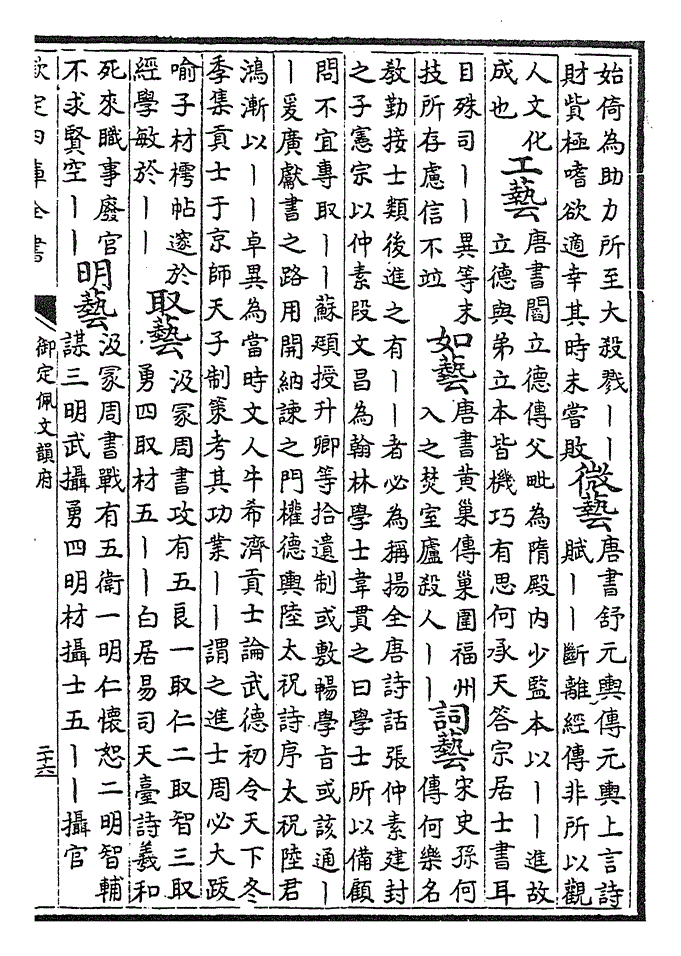 始倚為助力所至大殺戮丨丨
財貲極嗜欲適幸其時未嘗敗
微藝
唐書舒元輿傳元輿上言詩
賦丨丨斷離經傳非所以觀
人文化
成也
工藝
唐書閻立德傳父毗為隋殿内少監本以丨丨進故
立德與弟立本皆機巧有思何承天答宗居士書耳
目殊司丨丨異等末
技所存慮信不竝
如藝
唐書黄巢傳巢圍福州
入之焚室廬殺人丨丨
詞藝
宋史孫何
傳何樂名
教勤接士類後進之有丨丨者必為稱揚全唐詩話張仲素建封
之子憲宗以仲素段文昌為翰林學士韋貫之曰學士所以備顧
問不宜專取丨丨蘇頲授升卿等拾遺制或敷暢學旨或該通丨
丨爰廣獻書之路用開納諫之門權德輿陸太祝詩序太祝陸君
鴻漸以丨丨卓異為當時文人牛希濟貢士論武德初令天下冬
季集貢士于京師天子制策考其功業丨丨謂之進士周必大跋
喻子材樗帖邃於
經學敏於丨丨
取藝
汲冢周書攻有五良一取仁二取智三取
勇四取材五丨丨白居易司天臺詩羲和
死來職事廢官
不求賢空丨丨
明藝
汲冢周書戰有五衛一明仁懷恕二明智輔
謀三明武攝勇四明材攝士五丨丨攝官
欽定四庫全書
御定佩文韻府
二十六